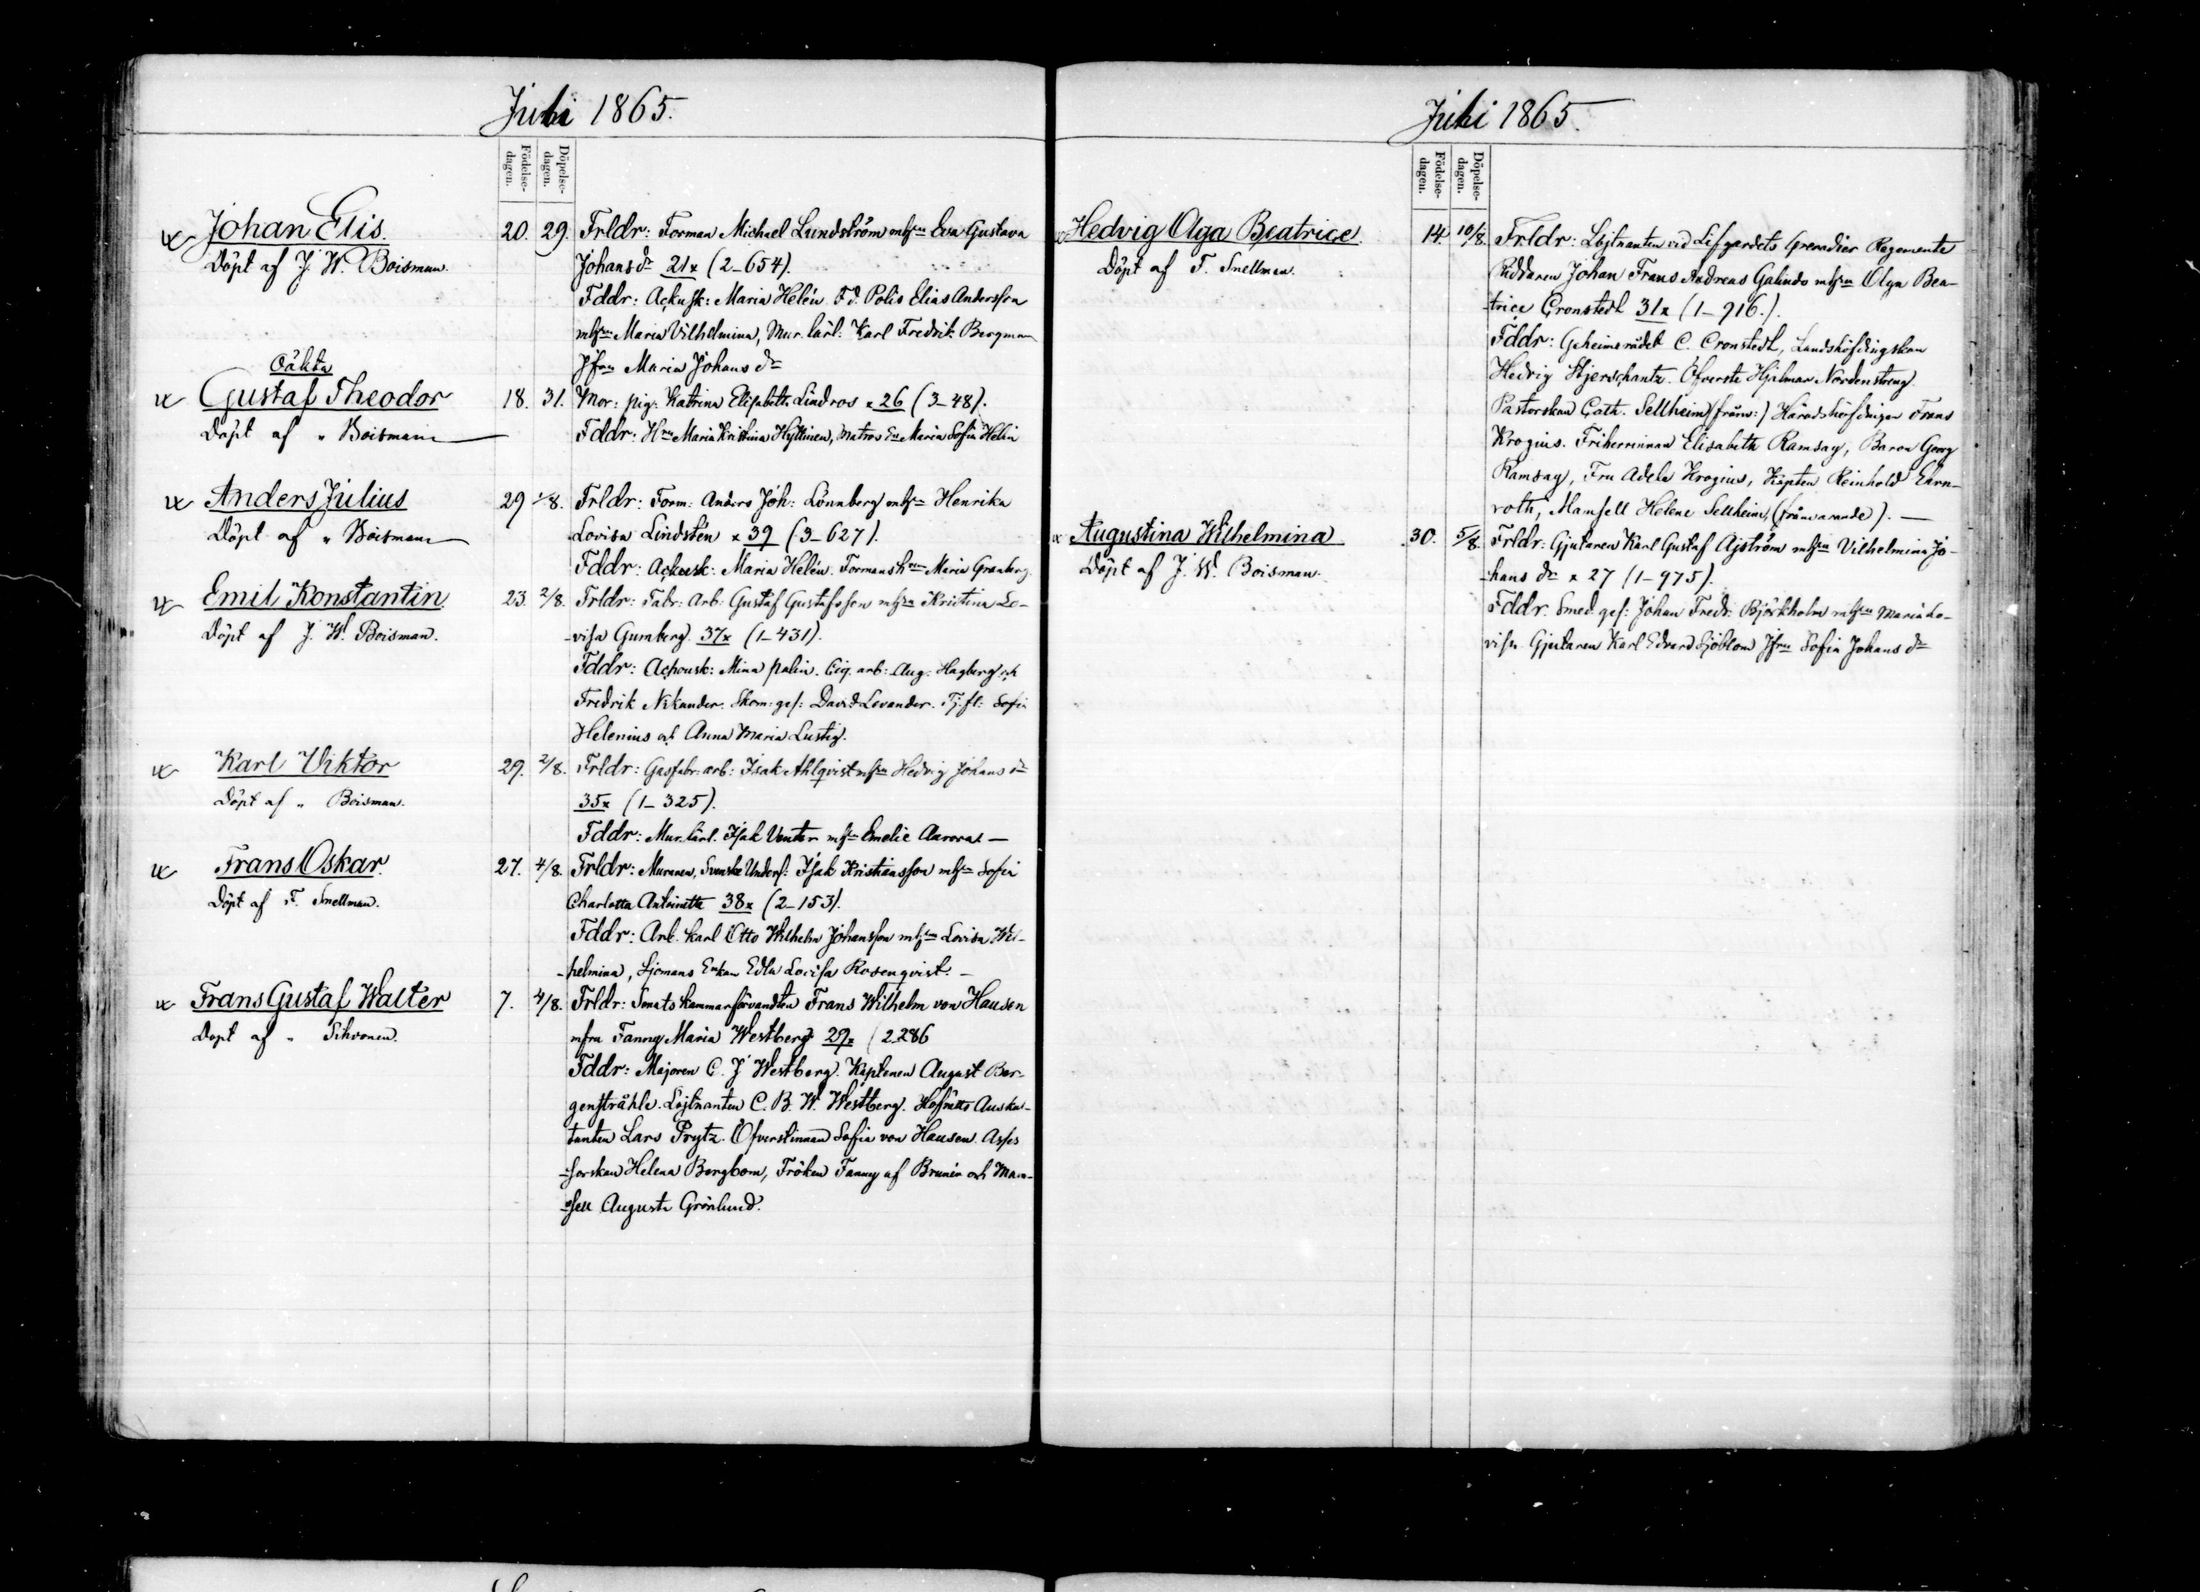 Juli 1865.
Födelse-dagen.
Döpelse-dagen.
Johan Elis.
20. 29.
Döpt af J. W. Boisman.
Frldr: Forman Michael Lundström mhfru Eva Gustava
Johansdr 21x (2-654).
Fddr: Ackusk: Maria Helén. F.d. Polis Elias Andersson
mhfru Maria Vilhelmina, Mur. lärl: Karl Fredrik Bergman
Jfru Maria Johansdr
Oäkta
Gustaf Theodor
18. 31.
Döpt af " Boisman
Mor: pig: Katrina Elisabeth Lindros x 26 (3-48).
Fddr: Hru Maria Kristina Hyttinen, Matros Maria Sofia Helin
Anders Julius
29 1/8.
Döpt af " Boisman
Frldr: Form: Anders Joh: Lönnberg mhfru Henrika
Lovisa Lindstén x 39 (3-627).
Fddr: Ackusk: Maria Helén. Formans hru Maria Granberg.
Emil Konstantin.
23. 2/8.
Döpt af J. W. Boisman.
Frldr: Fabr: Arb: Gustaf Gustafsson mhfru Kristina Lo-
-visa Gumberg. 37x (1-431).
Fddr: Achousk: Mina Palin. Cig. arb: Aug. Hagberg och
Fredrik Nikander. Skom: ges: David Levander. Tj. fl: Sofia
Helenius och Anna Maria Lustig.
Karl Viktor
29. 2/8.
Döpt af " Boisman.
Frldr: Gasfabr: arb: Isak Ahlqvist mhfru Hedvig Johansdr
35x (1-325).
Fddr: Mur. lärl. Isak Venter mhfru Emelie Aurora
Frans Oskar.
27. 4/8.
Döpt af F. Snellman.
Frldr: Muraren, Svenske Unders: Isak Kristiansson mhfru Sofia
Charlotta Antoinette 38x (2-153).
Fddr: Arb. Karl Otto Wilhelm Johansson mhfru Lovisa Wil-
-helmina, Sjömans Enkan Edla Lovisa Rosenqvist.
Frans Gustaf Walter
7. 4/8.
Döpt af " Sihvonen.
Frldr: Senats kammarförvandten Frans Wilhelm von Hausen
mfru Fanny Maria Westberg 29x (2.286
Fddr: Majoren C. J. Westberg. Kaptenen August Ber-
genstråhle. Löjtnanten C. B. W. Westberg. Hofrätts Ausku-
tanten Lars Prytz. Öfverstinnan Sofia von Hausen. Asses
-sorskan Helena Bergbom, Fröken Fanny af Brunér och Mam-
-sell Augusta Grönlund.
Juli 1865.
Födelse-dagen.
Döpelse-dagen.
Hedvig Olga Beatrice.
14. 10/8.
Döpt af F. Snellman.
Frldr: Löjtnanten vid Lifgardets Grenadier Regemente
Riddaren Johan Frans Andreas Galindo mhfru Olga Bea-
-trice Cronstedt 31x (1-916.).
Fddr: Geheimerådet C. Cronstedt, Landshöfdingskan
Hedvig Stjerschantz. Öfverste Hjalmar Nordenstreng.
Pastorskan Cath. Sellheim (frånv:) Häradshöfdingen Frans
Krogius. Friherrinnan Elisabeth Ramsay, Baron Georg
Ramsay, Fru Adela Krogius, Kapten Reinhold Ehrn-
roth, Mamsell Helene Sellheim, (frånvarande).
Augustina Wilhelmina
30. 5/8.
Döpt af J. W. Boisman.
Frldr: Gjutaren Karl Gustaf Åjström mhfru Vilhelmina Jo-
-hansdr x 27 (1-975).
Fddr. Smed. ges: Johan Fredr. Björkholm mhfru Maria Lo-
visa. Gjutaren Karl Edvard Sjöblom Jfru Sofia Johansdr